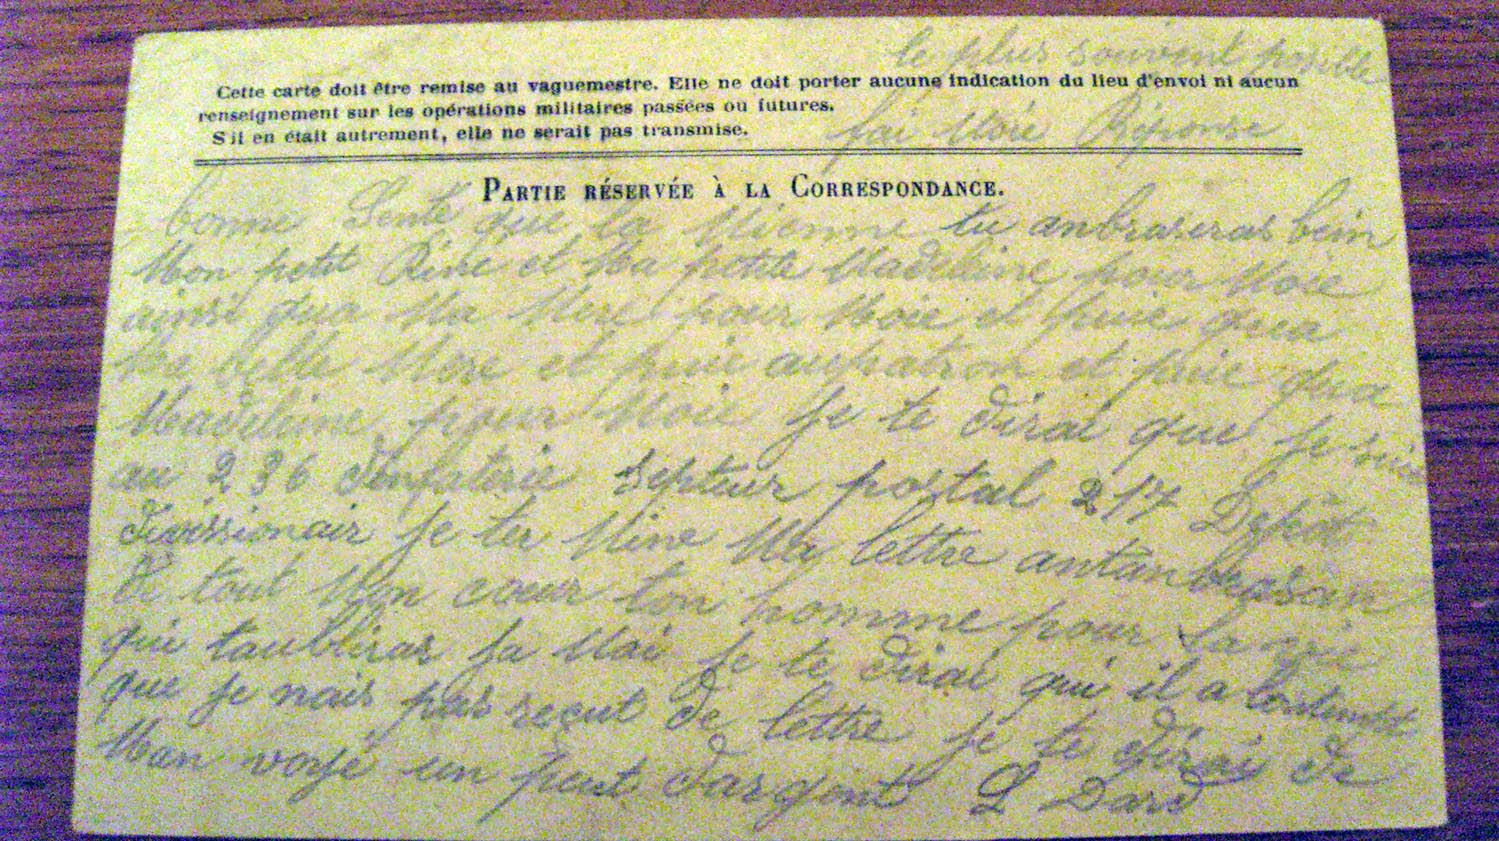 le plus souvent posible
Cette carte doit être remise au vaguemestre. Elle ne doit porter aucune indication du lieu d'envoi ni aucun
renseignement sur les opérations militaires passées ou futures.
S'il en était autrement, elle ne serait pas transmise.
fai Moie Réponse
PARTIE RÉSERVÉE À LA CORRESPONDANCE.
bonne Senté que la Mienne tu anbraseras bein
Mon petit Réné et Ma petite Madeleine pour Moie
ainsi qua Ma Mere pour Moie et puie qua
Ma belle Mere et puie aupatron et puie qua
Madeleine pour Moie Je te dirai que Je suie
au 236 denfaterie septeur postal 217 Depot
divissionair Je ter Mine Ma lettre antanbrasan
de tout Mon cœur ton homme pour la vie
qui taubliras Ja Mai Je te dirai qui il a lontemt
que Je nais pas reçut de lettre Je te dirai de
Man voyé un peut dargent L Dard